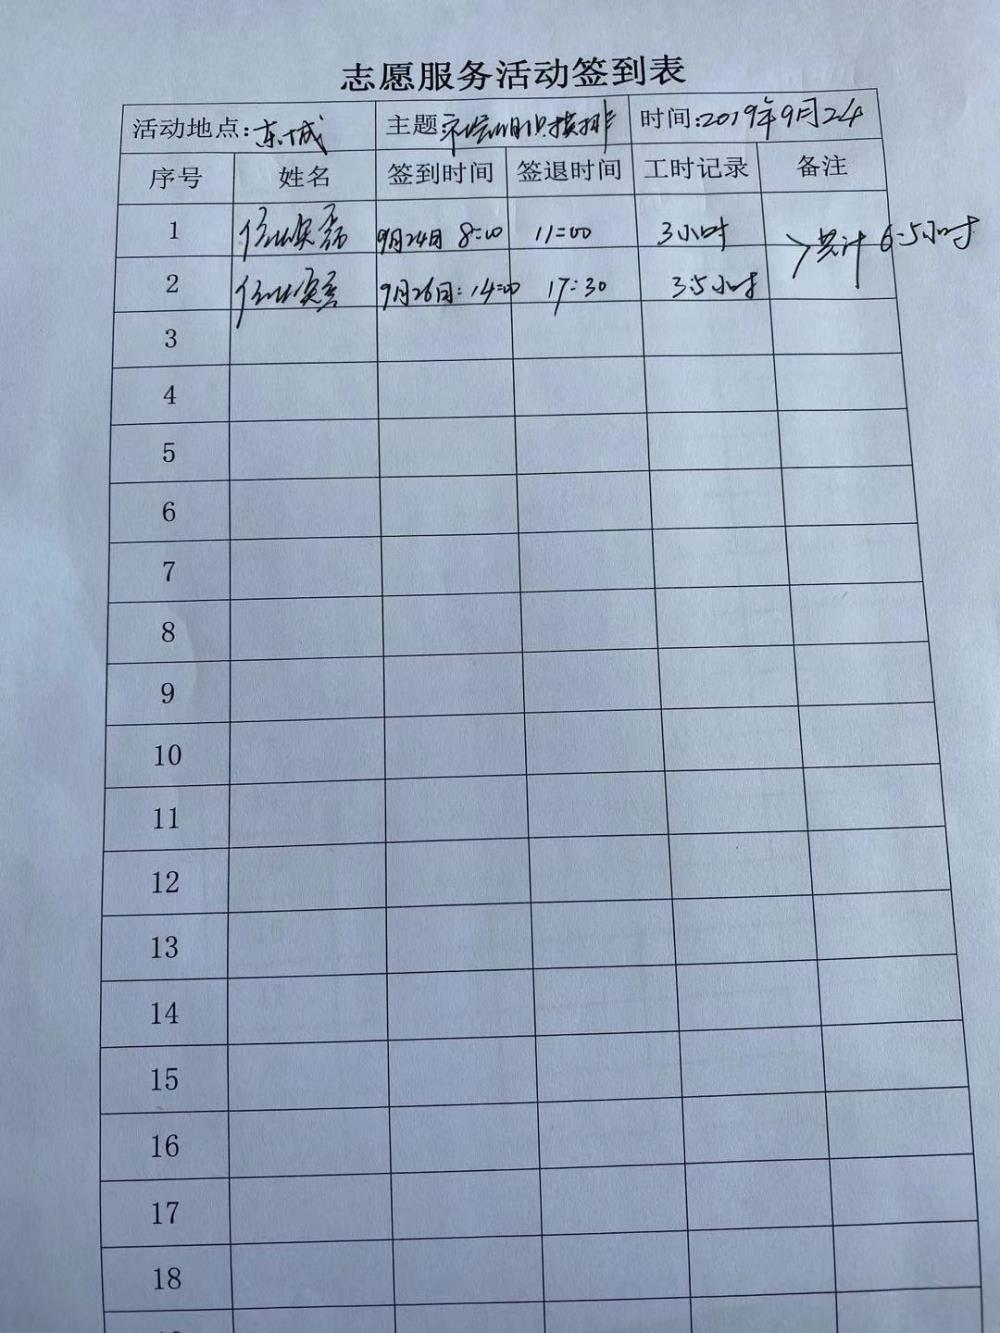 志愿服务活动签到表
活动地点:东城 主题 摸排 时间:2019年9月24
序号 姓名 签到时间 签退时间 工时记录 备注
1 9月24日 8:00 11:00 3小时 共计6.5小时
2 9月26日:14:00 17:30 3.5小时
3
4
5
6
7
8
9
10
11
12
13
14
15
16
17
18